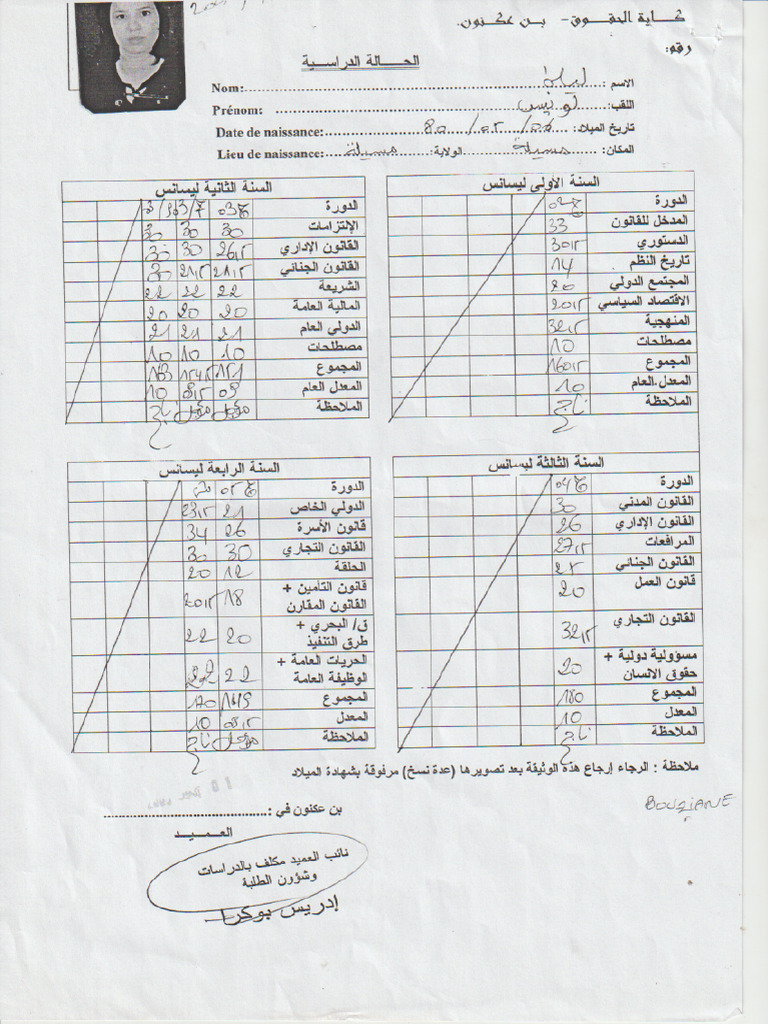 كلية الحقوق- بن عكنون.
رقم:
الحالة الدراسية
Nom: الاسم :
Prénom: اللقب:
Date de naissance: 80/02/06 تاريخ الميلاد:
Lieu de naissance: مسيلة الولاية: مسيلة المكان:
السنة الأولى ليسانس
الدورة
المدخل للقانون 33
الدستوري 30,5
تاريخ النظم 14
المجتمع الدولي 20
الاقتصاد السياسي 20,5
المنهجية 32,5
مصطلحات 10
المجموع 160,5
المعدل العام 10
الملاحظة ناجح
السنة الثانية ليسانس
الدورة
الإلتزامات 30 30 30
القانون الإداري 26,5 30 30
القانون الجنائي 21,5 21,5 30
الشريعة 22 22 22
المالية العامة 20 20 20
الدولي العام 21 21 21
مصطلحات 10 10 10
المجموع 151 154,5 163
المعدل العام 09 09,5 10
الملاحظة مؤجل مؤجل ناجح
السنة الثالثة ليسانس
الدورة
القانون المدني 30
القانون الإداري 26
المرافعات 27,5
القانون الجنائي
قانون العمل 20
القانون التجاري 32,5
مسؤولية دولية +
حقوق الانسان 20
المجموع 180
المعدل 10
الملاحظة ناجح
السنة الرابعة ليسانس
الدورة
الدولي الخاص 21 23,5
قانون الأسرة 26 34
القانون التجاري 30 30
الحلقة 12 20
قانون التأمين +
القانون المقارن 18 20,5
ق/ البحري +
طرق التنفيذ 20 22
الحريات العامة +
الوظيفة العامة 22 22
المجموع 149 170
المعدل 08,5 10
الملاحظة مؤجل ناجح
ملاحظة : الرجاء إرجاع هذه الوثيقة بعد تصويرها (عدة نسخ) مرفوقة بشهادة الميلاد
BOUZIANE
بن عكنون في :
العميد
نائب العميد مكلف بالدراسات
وشؤون الطلبة
إدريس بوكرا